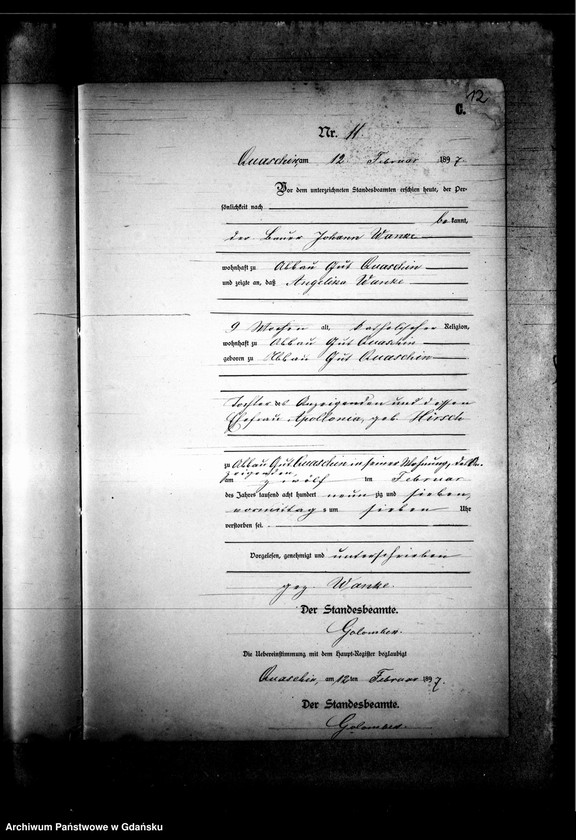 12
C.
Nr. 11.
Quaschin, am 12. Februar 1897.
Vor dem unterzeichneten Standesbeamten erschien heute, der Per-
sönlichkeit nach
be kannt,
der Bauer Johann Wanke
wohnhaft zu Abbau Gut Quaschin
und zeigte an, daß Angelika Wanke
9 Wochen alt, katholischer Religion,
wohnhaft zu Abbau Gut Quaschin
geboren zu Abbau Gut Quaschin
Tochter des Anzeigenden und dessen
Ehefrau Apollonia, geb. Hirsch
zu Abbau Gut Quaschin in seiner Wohnung, des An-
zeigenden,
am zwölf ten Februar
des Jahres tausend acht hundert neun zig und sieben,
vormittags um sieben Uhr
verstorben sei.
Vorgelesen, genehmigt und unterschrieben
gez. Wanke.
Der Standesbeamte.
Die Uebereinstimmung mit dem Haupt-Register beglaubigt
Quaschin, am 12ten Februar 1897.
Der Standesbeamte.
Archiwum Państwowe w Gdańsku